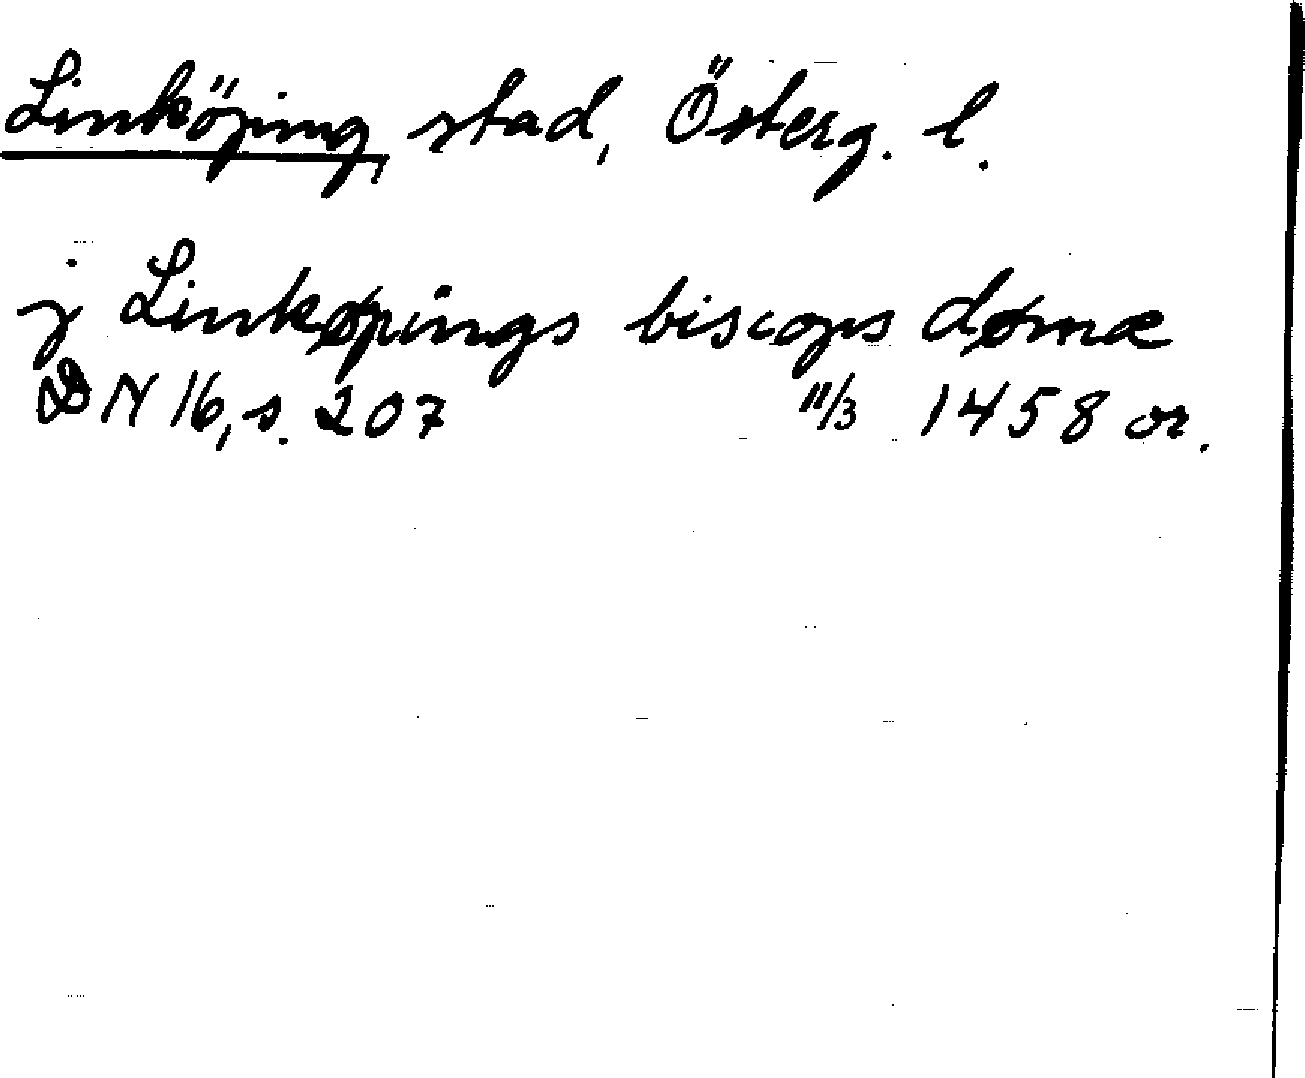 Linköping, stad, Österg. l.
j Linkøpings biscops dømæ
DN 16, s. 207 11/3 1458 or.